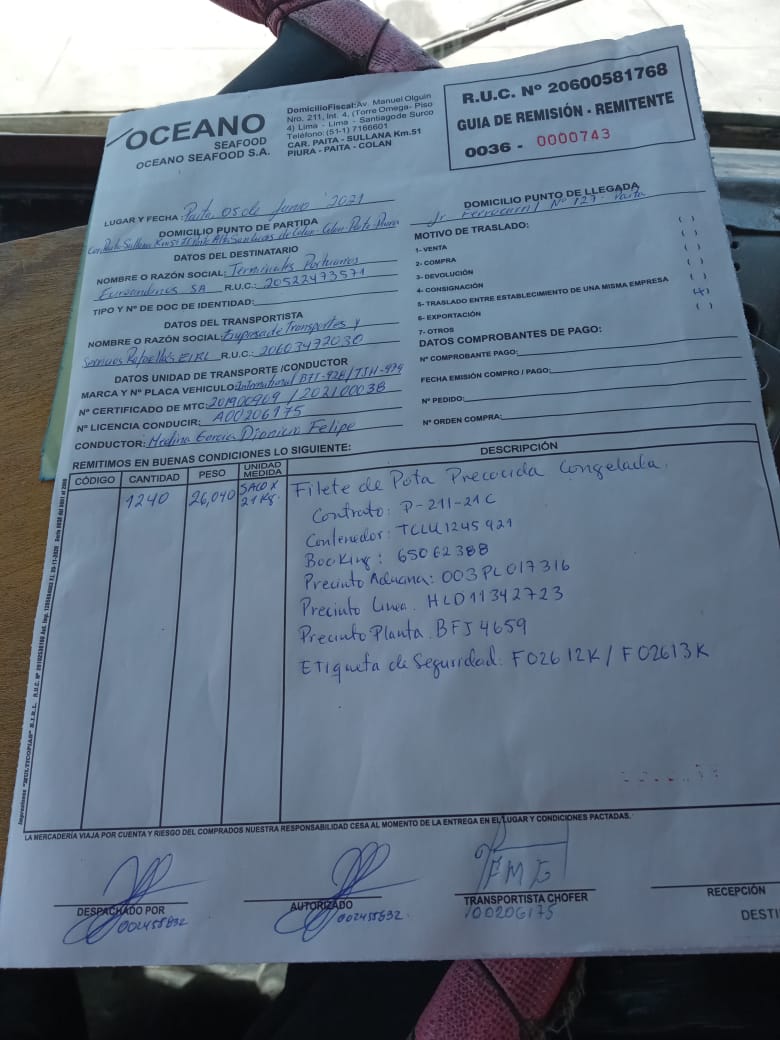 OCEANO
SEAFOOD
OCEANO SEAFOOD S.A.
Domicilio Fiscal: Av. Manuel Olguin
Nro. 211, Int. 4, (Torre Omega- Piso
4) Lima - Lima - Santiagode Surco
Teléfono: (51-1) 7166601
CAR. PAITA - SULLANA Km.51
PIURA - PAITA - COLAN
R.U.C. Nº 20600581768
GUIA DE REMISIÓN - REMITENTE
0036 - 0000743
LUGAR Y FECHA: Paita, 05 de Junio 2021
DOMICILIO PUNTO DE PARTIDA
DATOS DEL DESTINATARIO
NOMBRE O RAZÓN SOCIAL: Terminales Portuarios
Euroandinos SA R.U.C.: 20522473571
TIPO Y Nº DE DOC DE IDENTIDAD:
DATOS DEL TRANSPORTISTA
NOMBRE O RAZÓN SOCIAL: Empresa de Transportes y
Servicios EIRL R.U.C.: 20603472030
DATOS UNIDAD DE TRANSPORTE /CONDUCTOR
MARCA Y Nº PLACA VEHICULO: International
Nº CERTIFICADO DE MTC: 201900909 / 202100038
Nº LICENCIA CONDUCIR: A00206175
CONDUCTOR: Medina Garcia Dionicio Felipe
DOMICILIO PUNTO DE LLEGADA
Jr Ferrocarril Nº 127 - Paita
MOTIVO DE TRASLADO:
1- VENTA ( )
2- COMPRA ( )
3- DEVOLUCIÓN ( )
4- CONSIGNACIÓN ( )
5- TRASLADO ENTRE ESTABLECIMIENTO DE UNA MISMA EMPRESA ( )
6- EXPORTACIÓN
7- OTROS ( )
DATOS COMPROBANTES DE PAGO:
Nº COMPROBANTE PAGO:
FECHA EMISIÓN COMPRO / PAGO:
Nº PEDIDO:
Nº ORDEN COMPRA:
REMITIMOS EN BUENAS CONDICIONES LO SIGUIENTE:
CÓDIGO CANTIDAD PESO UNIDAD MEDIDA DESCRIPCIÓN
1240 26,040 SACO X 21 Kg. Filete de Pota Precocida Congelada.
Contrato: P-211-21C
Contenedor: TCLU1245921
Booking: 65062388
Precinto Aduana: 003PL017316
Precinto Linea. HLD11342723
Precinto Planta. BFJ4659
Etiqueta de Seguridad. F02612K / F02613K
LA MERCADERÍA VIAJA POR CUENTA Y RIESGO DEL COMPRADOS NUESTRA RESPONSABILIDAD CESA AL MOMENTO DE LA ENTREGA EN EL LUGAR Y CONDICIONES PACTADAS.
DESPACHADO POR
002455832
AUTORIZADO
002455832.
FMG
TRANSPORTISTA CHOFER
00206175
RECEPCIÓN
DESTI